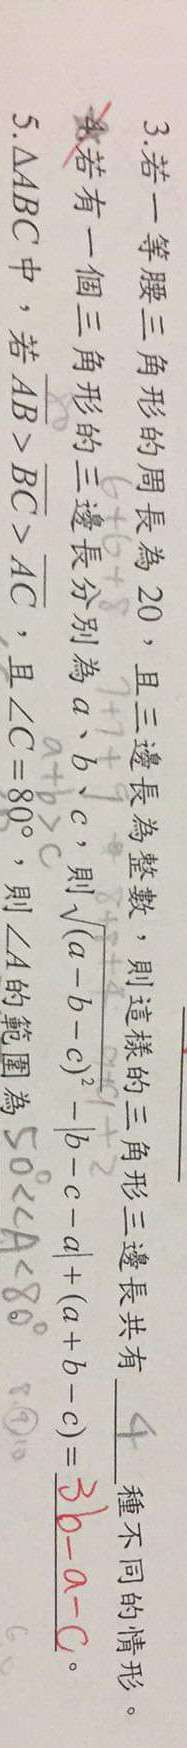 3.若一等腰三角形的周長為20，且三邊長為整數，則這樣的三角形三邊長共有 4 種不同的情形。
6+6+8 7+7+ 8+8+4
若有一個三角形的三邊長分別為a、b、c，則√(a-b-c)²-|b-c-a|+(a+b-c)=3b-a-c。
a+b>c
5.△ABC中，若AB>BC>AC，且∠C=80°，則∠A的範圍為50°<∠A<80°